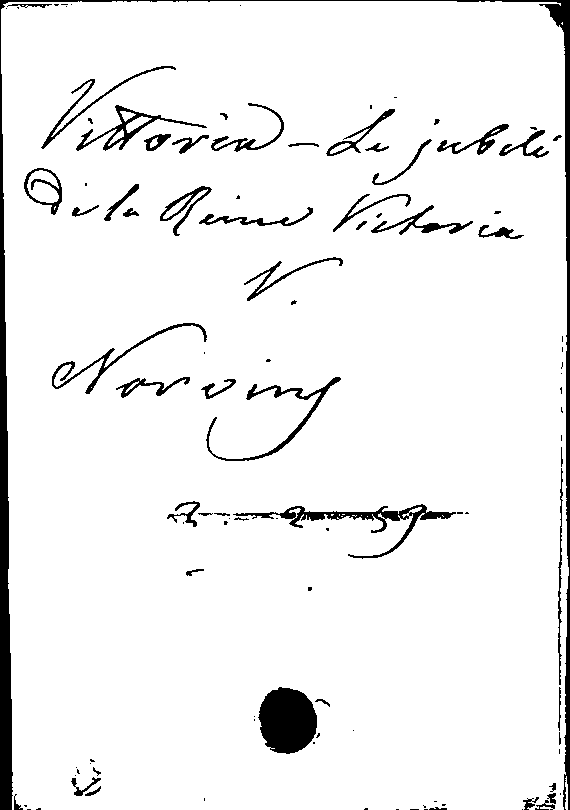 Vittoria - Le jubilé
de la Reine Victoria
V.
Norvins
2. 2. 59